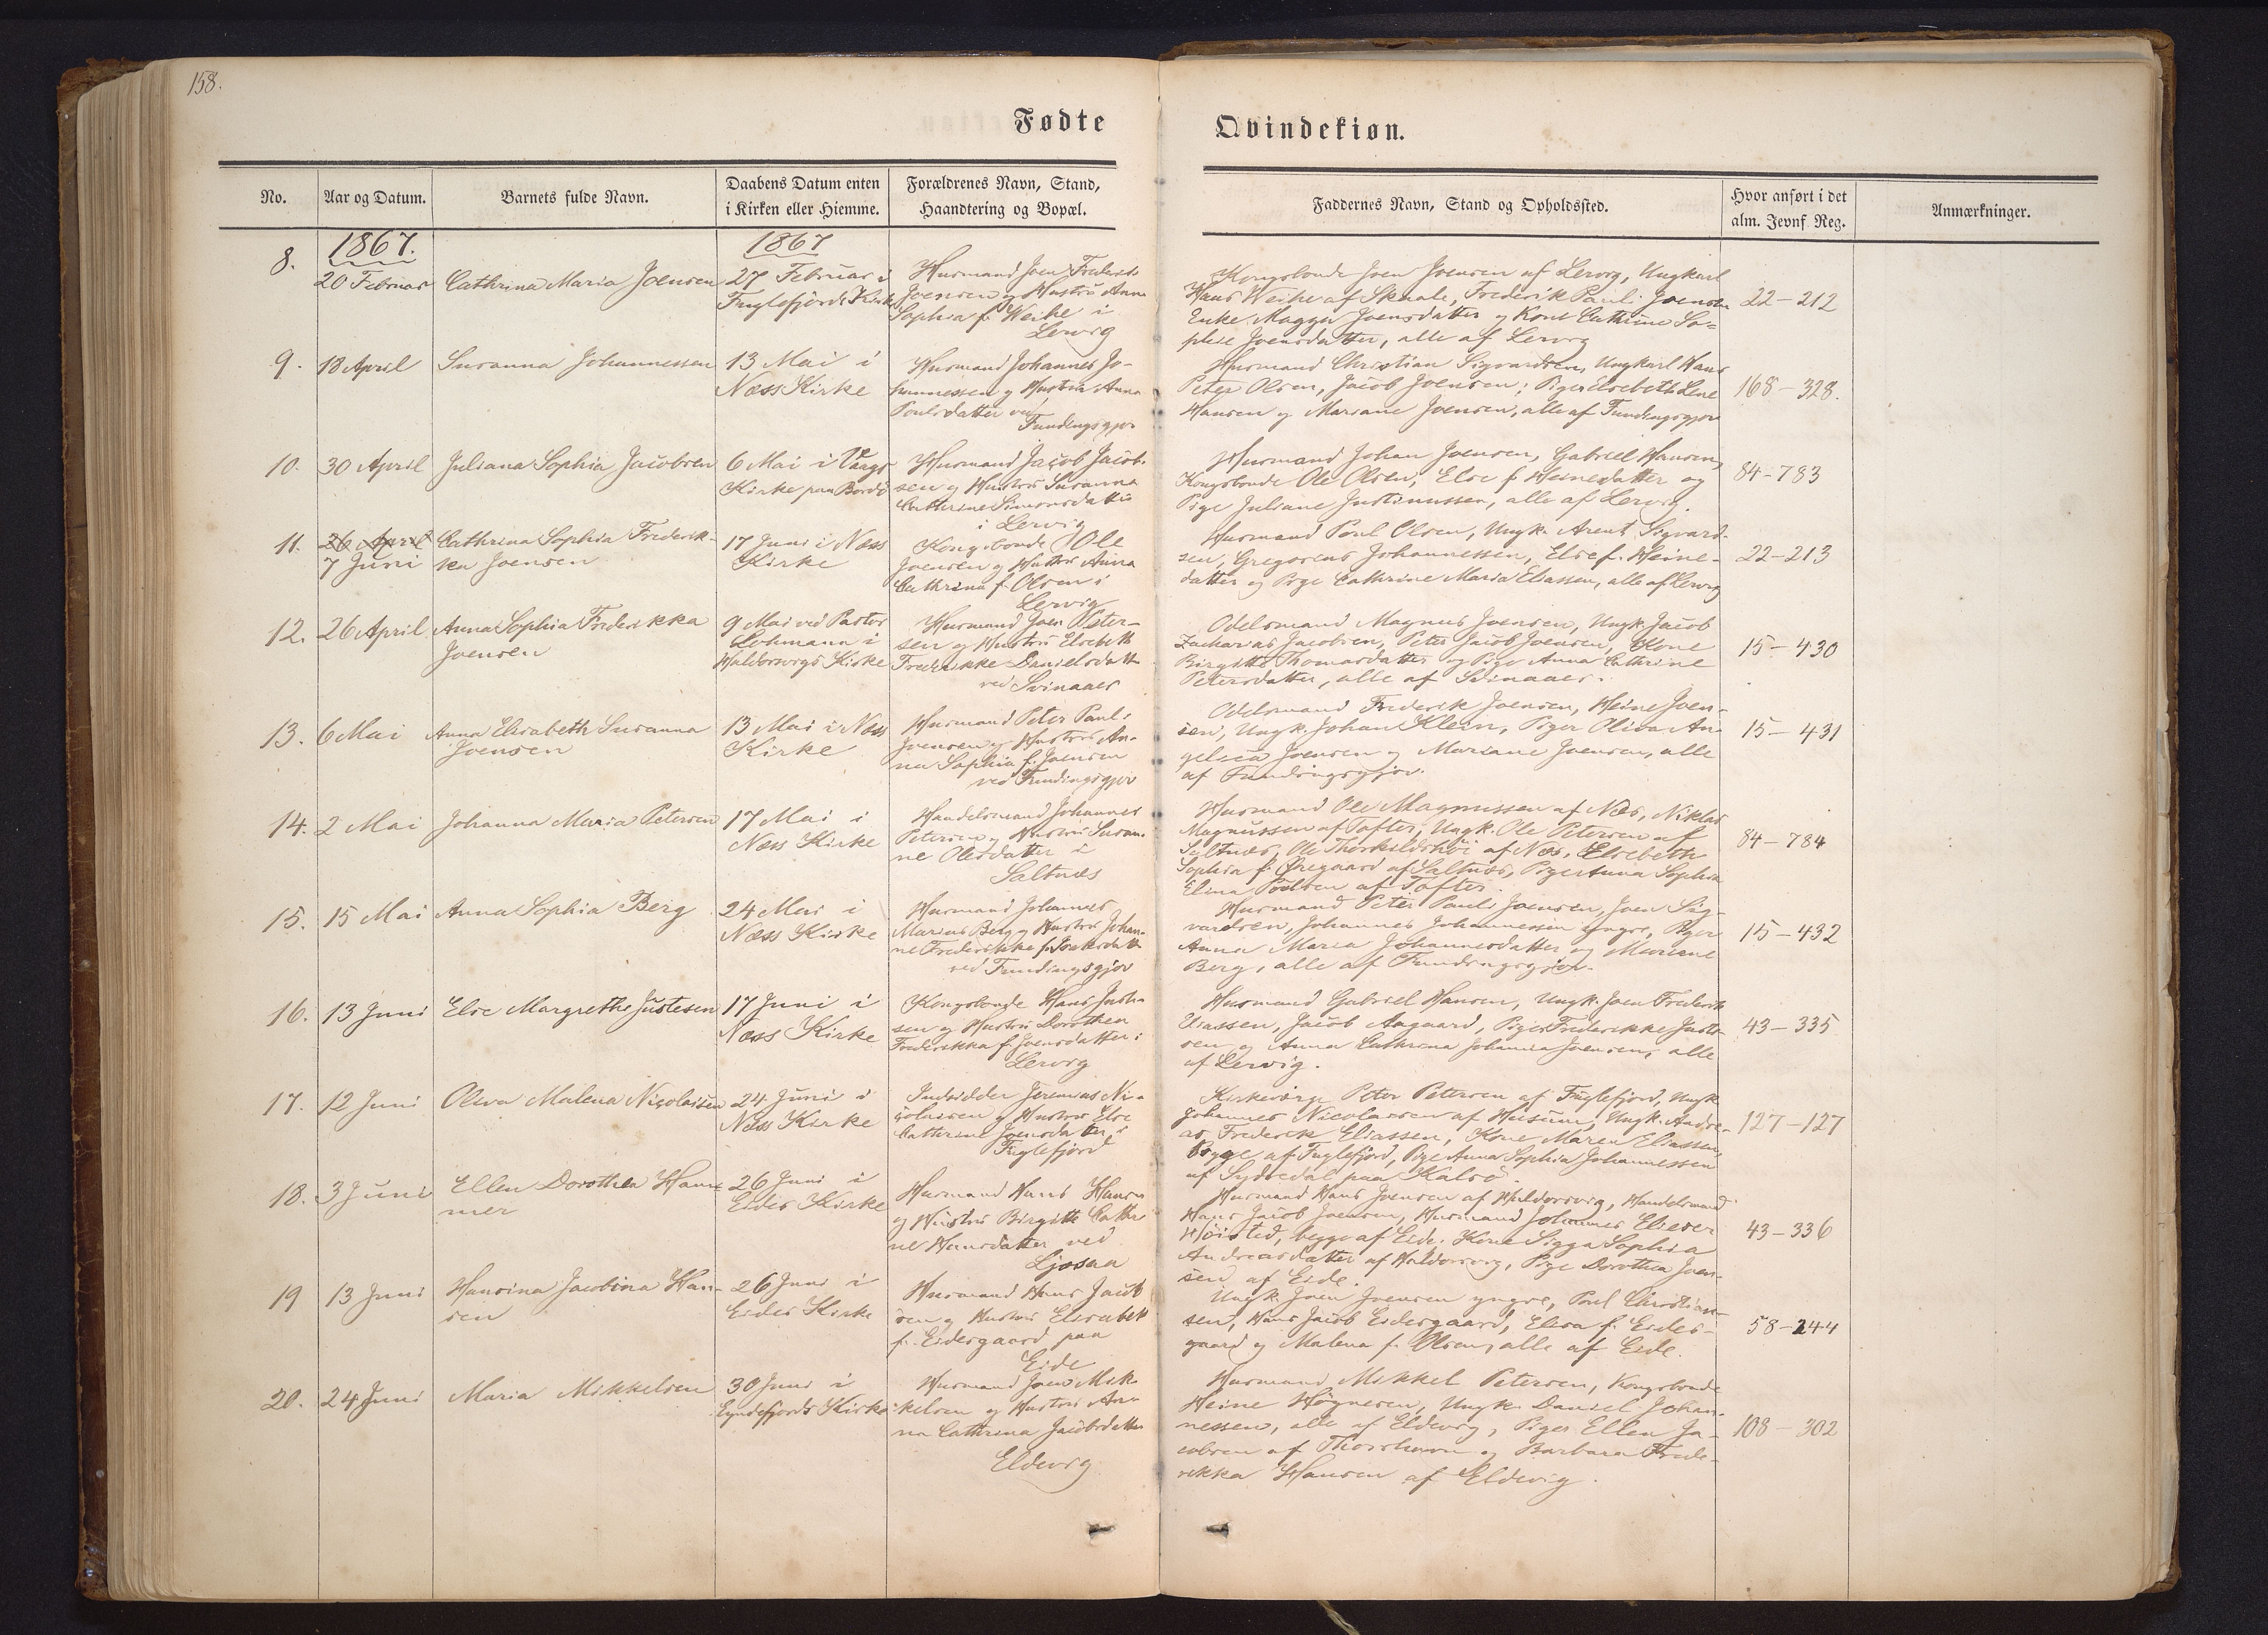 158.
Fødte
Qvindekiøn.
No.
Aar og Datum.
Barnets fulde Navn.
Daabens Datum enten
i Kirken eller Hiemme.
Forældrenes Navn, Stand,
Haandtering og Bopæl.
Faddernes Navn, Stand og Opholdssted.
Hvor anført i det
alm. Jevnf. Reg.
Anmærkninger.
1867.
1867
8.
20 Februar
Cathrina Maria Joensen
27 Februar i
Fuglefjords Kirke
Husmand Joen Frederik
Joensen og Hustru Anna
Sophia f. Weihe i
Lervig
Kongsbonde Joen Joensen af Lervig, Ungkarl
Hans Weihe af Skaale, Frederik Pauli Joensen
Enke Magga Joensdatter og Kone Cathrine So-
phie Joensdatter, alle af Lervig
22-212
9.
18 April
Susanna Johannessen
13 Mai i
Næss Kirke
Husmand Johannes Jo-
hannessen og Hustru Anna
Poulsdatter ved
Fundingsgjov
Husmand Christian Sigvardsen, Ungkarl Hans
Peter Olsen, Jacob Joensen, Piger Elsebeth Lene
Hansen og Mariane Joensen, alle af Fundingsgjov
168-328.
10.
30 April
Juliana Sophia Jacobsen
6 Mai i Vaags
Kirke paa Bordø
Husmand Jacob Jacob-
sen og Hustru Susanna
Cathrine Simonsdatter
i Lervig
Husmand Johan Joensen, Gabriel Hansen,
Kongsbonde Ole Olsen, Else f. Heinesdatter og
Pige Juliane Justinussen, alle af Lervig.
84-783
11.
26 April
7 Juni
Cathrina Sophia Frederik-
ka Joensen
17 Juni i Næss
Kirke
Kongsbonde Ole
Joensen og Hustru Anna
Cathrina f. Olsen i
Lervig
Husmand Poul Olsen, Ungk. Arent Sigvard-
sen, Gregorius Johannessen, Else f. Heine-
datter og Pige Cathrine Maria Eliassen, alle af Lervig
22-213
12.
26 April
Anna Sophia Frederikka
Joensen
9 Mai ved Pastor
Lohmann i
Haldorsvigs Kirke
Husmand Joen Peter-
sen og Hustru Elsebeth
Frederikke Danielsdatter
ved Svinaaer
Odelsmand Magnus Joensen, Ungk. Jacob
Zacharias Jacobsen, Peter Jacob Joensen, Kone
Birgitte Thomasdatter og Pige Anna Cathrine
Petersdatter, alle af Svinaaer.
15-430
13.
6 Mai
Anna Elisabeth Susanna
Joensen
13 Mai i Næss
Kirke
Husmand Peter Pauli
Joensen og Hustru An-
na Sophia f. Joensen
ved Fundingsgjov
Odelsmand Frederik Joensen, Heine Joen-
sen, Ungk. Johan Klein, Piger Oliva An-
gelica Joensen og Mariane Joensen, alle
af Fundingsgjov.
15-431
14.
2 Mai
Johanna Maria Petersen
17 Mai i
Næss Kirke
Handelsmand Johannes
Petersen og Hustru Susan-
ne Olesdatter i
Saltnæs
Husmand Ole Magnussen af Næs, Niklas
Magnussen af Tofter, Ungk. Ole Petersen af
Saltnæs, Ole Thorkildshøi af Næs, Elsebeth
Sophia f. Øregaard af Saltnæs, Pige Anna Sophia
Elina Poulsen af Tofter.
84-784
15.
15 Mai
Anna Sophia Berg
24 Mai i
Næss Kirke
Husmand Johannes
Marius Berg og Hustru Johan-
ne Frederikke f.
ved Fundingsgjov
Husmand Peter Pauli Joensen, Joen Sig-
vardsen, Johannes Johannessen yngre, Piger
Anna Maria Johannesdatter og Mariane
Berg, alle af Fundingsgjov.
15-432
16.
13 Juni
Else Margrethe Justesen
17 Juni i
Næss Kirke
Kongsbonde Hans Juste-
sen og Hustru Dorothea
Frederikka f. Joensdatter i
Lervig
Husmand Gabriel Hansen, Ungk. Joen Frederik
Eliassen, Jacob Aagaard, Piger Frederikke Juste-
sen og Anna Cathrina Johanna Joensen, alle
af Lervig.
43-335
17.
12 Juni
Oliva Malena Nicolaisen
24 Juni i
Næss Kirke
Indsidder Jeremias Ni-
colaisen og Hustru Else
Cathrine Joensdatter i
Fuglefjord
Kirkeværge Peter Petersen af Fuglefjord, Ungk.
Johannes Nicolaisen af Husum, Ungk. Andre-
as Frederik Eliassen, Kone Maren Eliassen,
begge af Fuglefjord, Pige Anna Sophia Johannessen
af Sydredal paa Kalsø.
127-127
18.
3 Juni
Ellen Dorothea Ham-
mer
26 Juni i
Eides Kirke
Husmand Hans Hansen
og Hustru Birgitte Cathri-
ne Hansdatter ved
Ljosaa
Husmand Hans Joensen af Haldorsvig, Handelsmand
Hans Jacob Joensen, Husmand Johannes Elieser
Høisted, begge af Eide, Kone Sigga Sophia
Andreasdatter af Haldorsvig, Pige Dorothea Joen-
sen af Eide.
43-336
19
13 Juni
Hansina Jacobina Han-
sen
26 Juni i
Eides Kirke
Husmand Hans Jacob
sen og Hustru Elisabeth
f. Eidesgaard paa
Eide
Ungk. Joen Joensen yngre, Poul Christian-
sen, Hans Jacob Eidesgaard, Elisa f. Eides-
gaard og Malena f. Olsen, alle af Eide.
58-244
20.
24 Juni
Maria Mikkelsen
30 Juni i
Eyndefjords Kirke
Husmand Joen Mik-
kelsen og Hustru An-
na Cathrina Jacobsdatter
Eldevig
Husmand Mikkel Petersen, Kongsbonde
Heine Høgnesen, Ungk. Daniel Johan-
nessen, alle af Eldevig, Piger Ellen Ja-
cobsen af Thorshavn og Barbara Frede-
rikka Hansen af Eldevig.
108-302